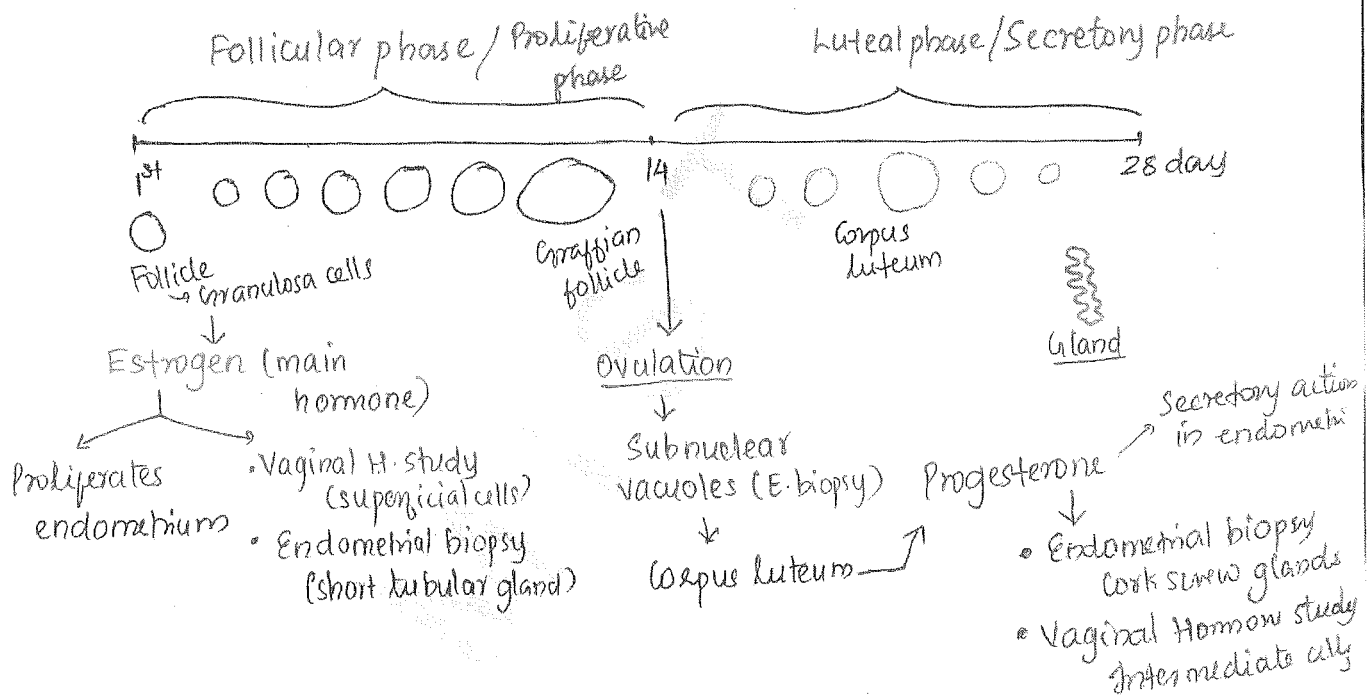 Follicular phase / Proliferative
phase
Luteal phase/Secretory phase
1st
14
28 day
Follicle
→ Granulosa cells
Graffian
follicle
Corpus
luteum
Gland
Estrogen (main
hormone)
Proliferates
endometrium
• Vaginal H. study
(superficial cells)
• Endometrial biopsy
(short tubular gland)
Ovulation
Subnuclear
vacuoles (E. biopsy)
Corpus luteum
Progesterone
Secretory action
in endometri
• Endometrial biopsy
Cork screw glands
• Vaginal Hormon study
Intermediate cells